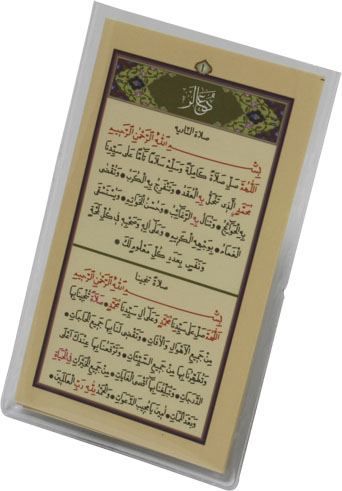 ١
صلاة التازيه
بِسْمِ اللهِ الرَّحْمٰنِ الرَّحِيمِ
اَللّٰهُمَّ صَلِّ صَلَاةً كَامِلَةً وَسَلِّمْ سَلَامًا تَامًّا عَلٰى سَيِّدِنَا
مُحَمَّدٍ الَّذِى تَنْحَلُّ بِهِ الْعُقَدُ وَتَنْفَرِجُ بِهِ الْكُرَبُ وَتُقْضٰى
بِهِ الْحَوَائِجُ وَتُنَالُ بِهِ الرَّغَائِبُ وَحُسْنُ الْخَوَاتِمِ وَيُسْتَسْقَى
الْغَمَامُ بِوَجْهِهِ الْكَرِيمِ وَعَلٰى اٰلِهِ وَصَحْبِهِ فِى كُلِّ لَمْحَةٍ
وَنَفَسٍ بِعَدَدِ كُلِّ مَعْلُومٍ لَكَ
صلاة تنجينا
بِسْمِ اللهِ الرَّحْمٰنِ الرَّحِيمِ
اَللّٰهُمَّ صَلِّ عَلٰى سَيِّدِنَا مُحَمَّدٍ وَعَلٰى اٰلِ سَيِّدِنَا مُحَمَّدٍ صَلَاةً تُنْجِينَا بِهَا
مِنْ جَمِيعِ الْاَهْوَالِ وَالْاٰفَاتِ وَتَقْضِى لَنَا بِهَا جَمِيعَ الْحَاجَاتِ
وَتُطَهِّرُنَا بِهَا مِنْ جَمِيعِ السَّيِّئَاتِ وَتَرْفَعُنَا بِهَا عِنْدَكَ اَعْلٰى
الدَّرَجَاتِ وَتُبَلِّغُنَا بِهَا اَقْصَى الْغَايَاتِ مِنْ جَمِيعِ الْخَيْرَاتِ فِى الْحَيَاةِ
وَبَعْدَ الْمَمَاتِ اٰمِينَ يَا مُجِيبَ الدَّعَوَاتِ وَالْحَمْدُ لِلّٰهِ رَبِّ الْعَالَمِينَ